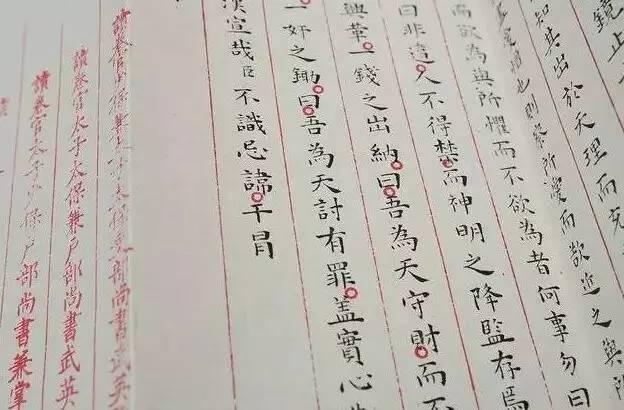 鏡止
知其出於天理而克
也則終所溺而欲近之與所
而欲為與所懼而不欲為者何事勿曰
曰非遠人不得禁而神明之降監存焉
興革一錢之出納曰吾為天守財而不
一奸之鋤曰吾為天討有罪蓋實心
漢宣哉臣不識忌諱干冒
讀卷官太子太保兼部尚書武英
讀卷官太子太保兼戶部尚書武英
讀卷官太子少保戶部尚書兼掌